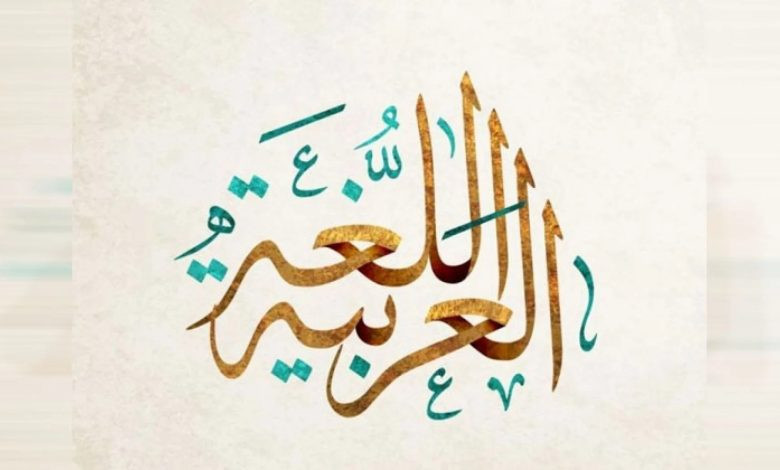 اللُّغَةُ
العربية